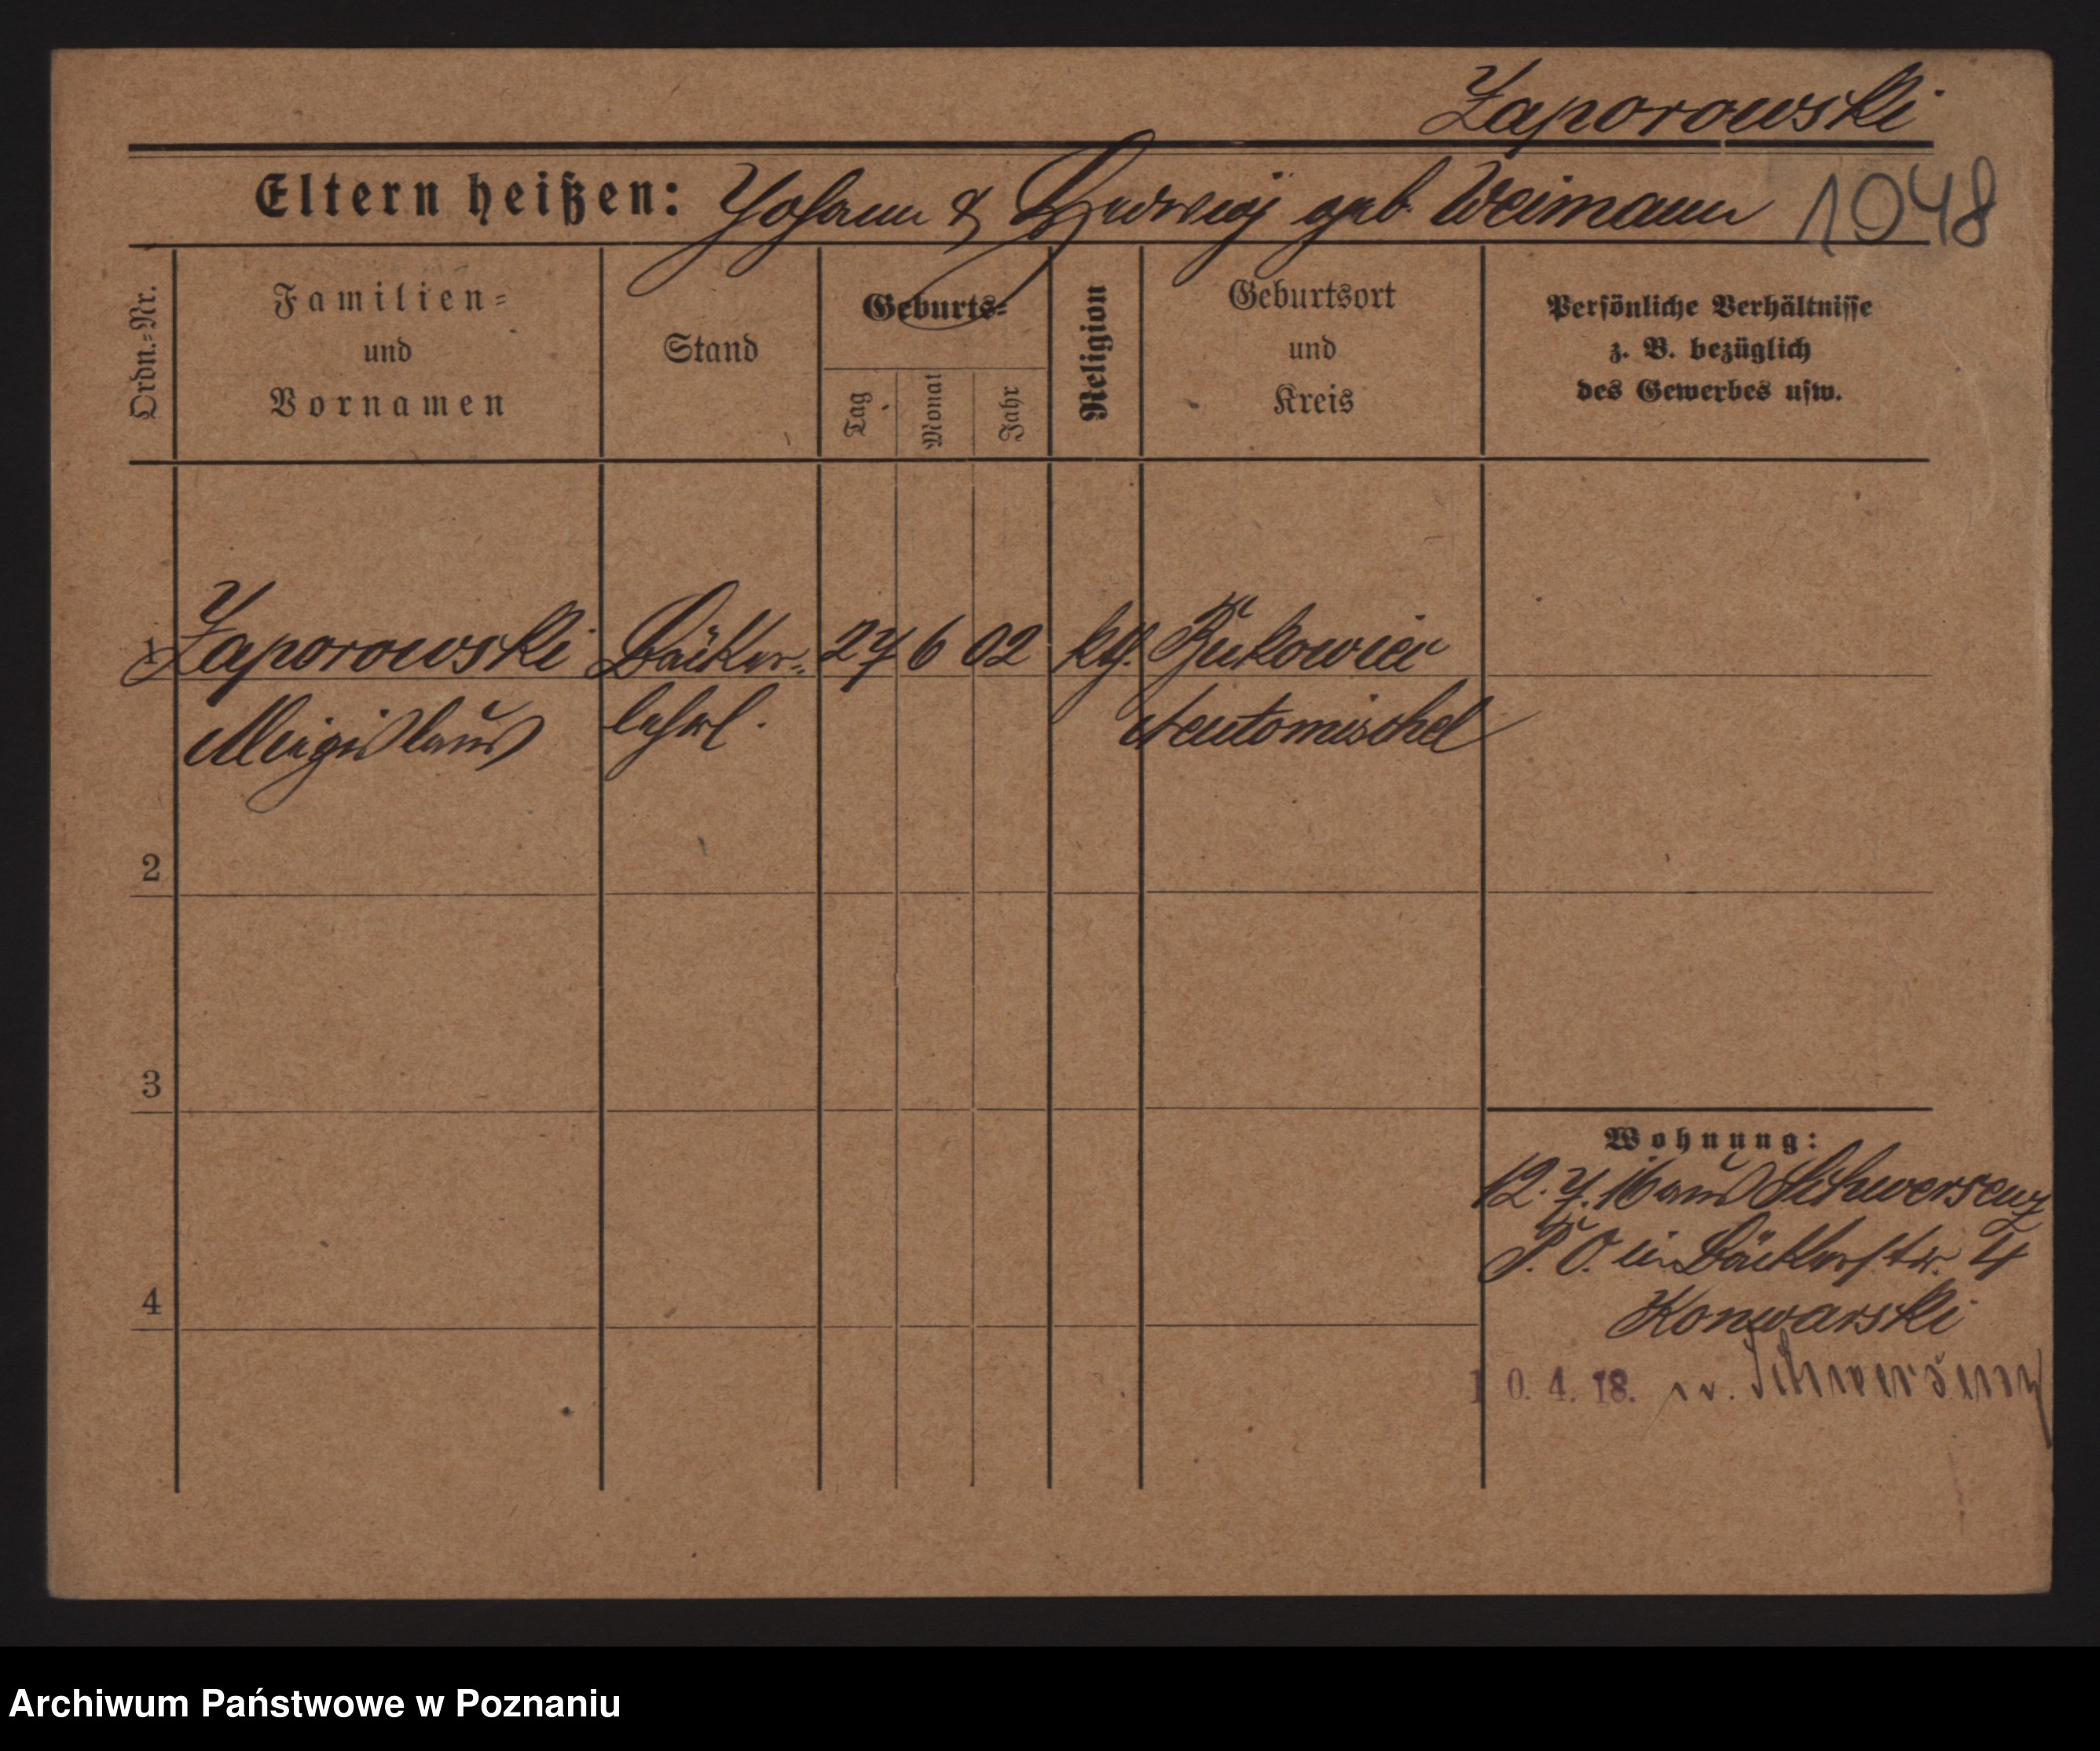 Zaporowski
Eltern heißen: Johann & Hedwig geb. Weimann 1048
Ordn.-Nr.
Familien-
und
Vornamen
Stand
Geburts-
Tag
Monat
Jahr
Religion
Geburtsort
und
Kreis
Persönliche Verhältnisse
z. B. bezüglich
des Gewerbes usw.
1 Zaporowski Bäcker- 27 6 02 kth. Bukowiec
Miezislaus lehrl. Neutomischel
2
3
4
Wohnung:
12. 7. 16 aus Schwersenz
P. O. in Bäckerstr. 4
Konwarski
10. 4. 18. n. Schwersenz
Archiwum Państwowe w Poznaniu